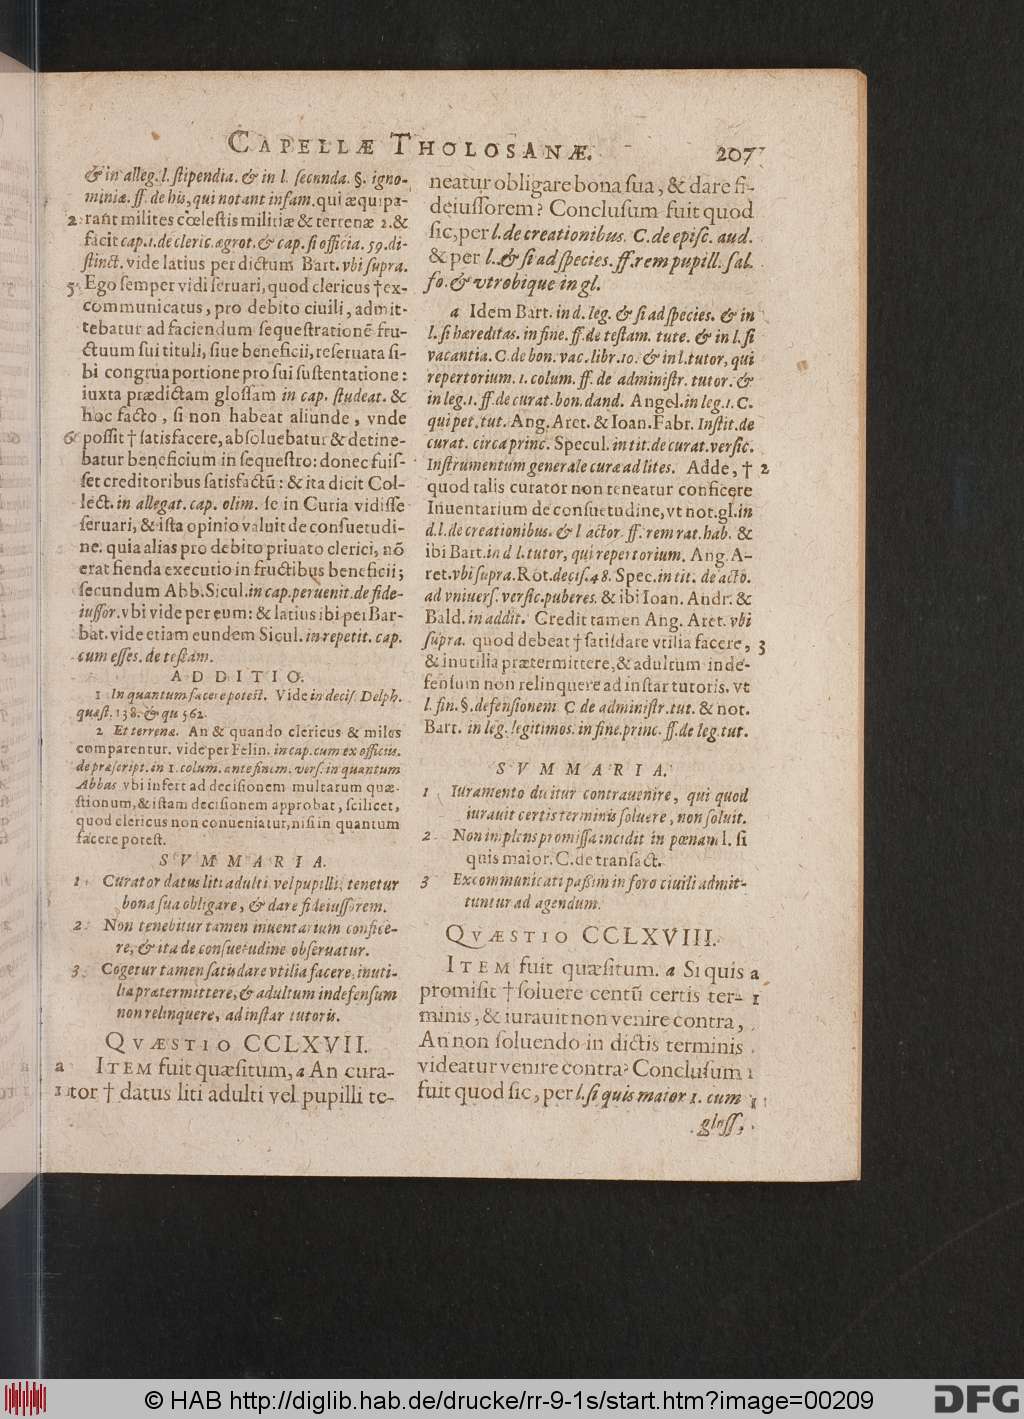 CAPELLÆ THOLOSANÆ. 207
& in alleg. l. ſtipendia. & in l. ſecunda. §. igno-
miniæ. ff. de his, qui notant infam. qui æquipa-
2 rant milites cœleſtis militiæ & terrenæ 2. &
facit cap. 1. de cleric. ægrot. & cap. ſi officia. 59. di-
ſtinct. vide latius per dictum Bart. vbi ſupra.
5 Ego ſemper vidi ſeruari, quod clericus † ex-
communicatus, pro debito ciuili, admit-
tebatur ad faciendum ſequeſtrationẽ fru-
ctuum ſui tituli, ſiue beneficii, reſeruata ſi-
bi congrua portione pro ſui ſuſtentatione:
iuxta prædictam gloſſam in cap. ſtudeat. &
hoc facto, ſi non habeat aliunde, vnde
6 poſſit † ſatisfacere, abſoluebatur & detine-
batur beneficium in ſequeſtro: donec fuiſ-
ſet creditoribus ſatisfactũ: & ita dicit Col-
lect. in allegat. cap. olim. ſe in Curia vidiſſe
ſeruari, & iſta opinio valuit de conſuetudi-
ne. quia alias pro debito priuato clerici, nõ
erat fienda executio in fructibus beneficii;
ſecundum Abb. Sicul. in cap. peruenit. de fide-
iuſſor. vbi vide per eum: & latius ibi per Bar-
bat. vide etiam eundem Sicul. in repetit. cap.
cum eſſes. de teſtam.
ADDITIO.
1 In quantum facere poteſt. Vide in deciſ. Delph.
quæſt. 138. & qu 562.
2 Et terrenæ. An & quando clericus & miles
comparentur. vide per Felin. in cap. cum ex officiis.
de præſcript. in 1. colum. ante finem. verſ. in quantum
Abbas vbi infert ad deciſionem multarum quæ-
ſtionum, & iſtam deciſionem approbat, ſcilicet,
quod clericus non conueniatur, niſi in quantum
facere poteſt.
SVMMARIA.
1 Curator datus liti adulti vel pupilli, tenetur
bona ſua obligare, & dare fideiuſſorem.
2 Non tenebitur tamen inuentarium confice-
re, & ita de conſuetudine obſeruatur.
3 Cogetur tamen ſatisdare vtilia facere, inuti-
lia prætermittere, & adultum indefenſum
non relinquere, ad inſtar tutoris.
QVÆSTIO CCLXVII.
a ITEM fuit quæſitum, a An cura-
1 tor † datus liti adulti vel pupilli te-
neatur obligare bona ſua, & dare fi-
deiuſſorem? Concluſum fuit quod
ſic, per l. de creationibus. C. de epiſc. aud.
& per l. & ſi ad ſpecies. ff. rem pupill. ſal.
fo. & vtrobique in gl.
a Idem Bart. in d. leg. & ſi ad ſpecies. & in
l. ſi hæreditas. in fine. ff. de teſtam. tute. & in l. ſi
vacantia. C. de bon. vac. libr. 10. & in l. tutor, qui
repertorium. 1. colum. ff. de adminiſtr. tutor. &
in leg. 1. ff. de curat. bon. dand. Angel. in leg. 1. C.
qui pet. tut. Ang. Aret. & Ioan. Fabr. Inſtit. de
curat. circa princ. Specul. in tit. de curat. verſic.
Inſtrumentum generale curæ ad lites. Adde, † 2
quod talis curator non teneatur conficere
Inuentarium de conſuetudine, vt not. gl. in
d. l. de creationibus. & l actor. ff. rem rat. hab. &
ibi Bart. in d l. tutor, qui repertorium. Ang. A-
ret. vbi ſupra. Rot. deciſ. 48. Spec. in tit. de acto.
ad vniuerſ. verſic. puberes. & ibi Ioan. Andr. &
Bald. in addit. Credit tamen Ang. Aret. vbi
ſupra. quod debeat † ſatiſdare vtilia facere, 3
& inutilia prætermittere, & adultum inde-
fenſum non relinquere ad inſtar tutoris. vt
l. fin. §. defenſionem C de adminiſtr. tut. & not.
Bart. in leg. legitimos. in fine. princ. ff. de leg. tut.
SVMMARIA.
1 Iuramento dicitur contrauenire, qui quod
iurauit certis terminis ſoluere, non ſoluit.
2 Non implens promiſſa incidit in pœnam l. ſi
quis maior. C. de tranſact.
3 Excommunicati paßim in foro ciuili admit-
tuntur ad agendum.
QVÆSTIO CCLXVIII.
ITEM fuit quæſitum. a Si quis a
promiſit † ſoluere centũ certis ter- 1
minis, & iurauit non venire contra,
An non ſoluendo in dictis terminis
videatur venire contra? Concluſum
fuit quod ſic, per l. ſi quis maior 1. cum 1
gloſſ,
© HAB http://diglib.hab.de/drucke/rr-9-1s/start.htm?image=00209
DFG